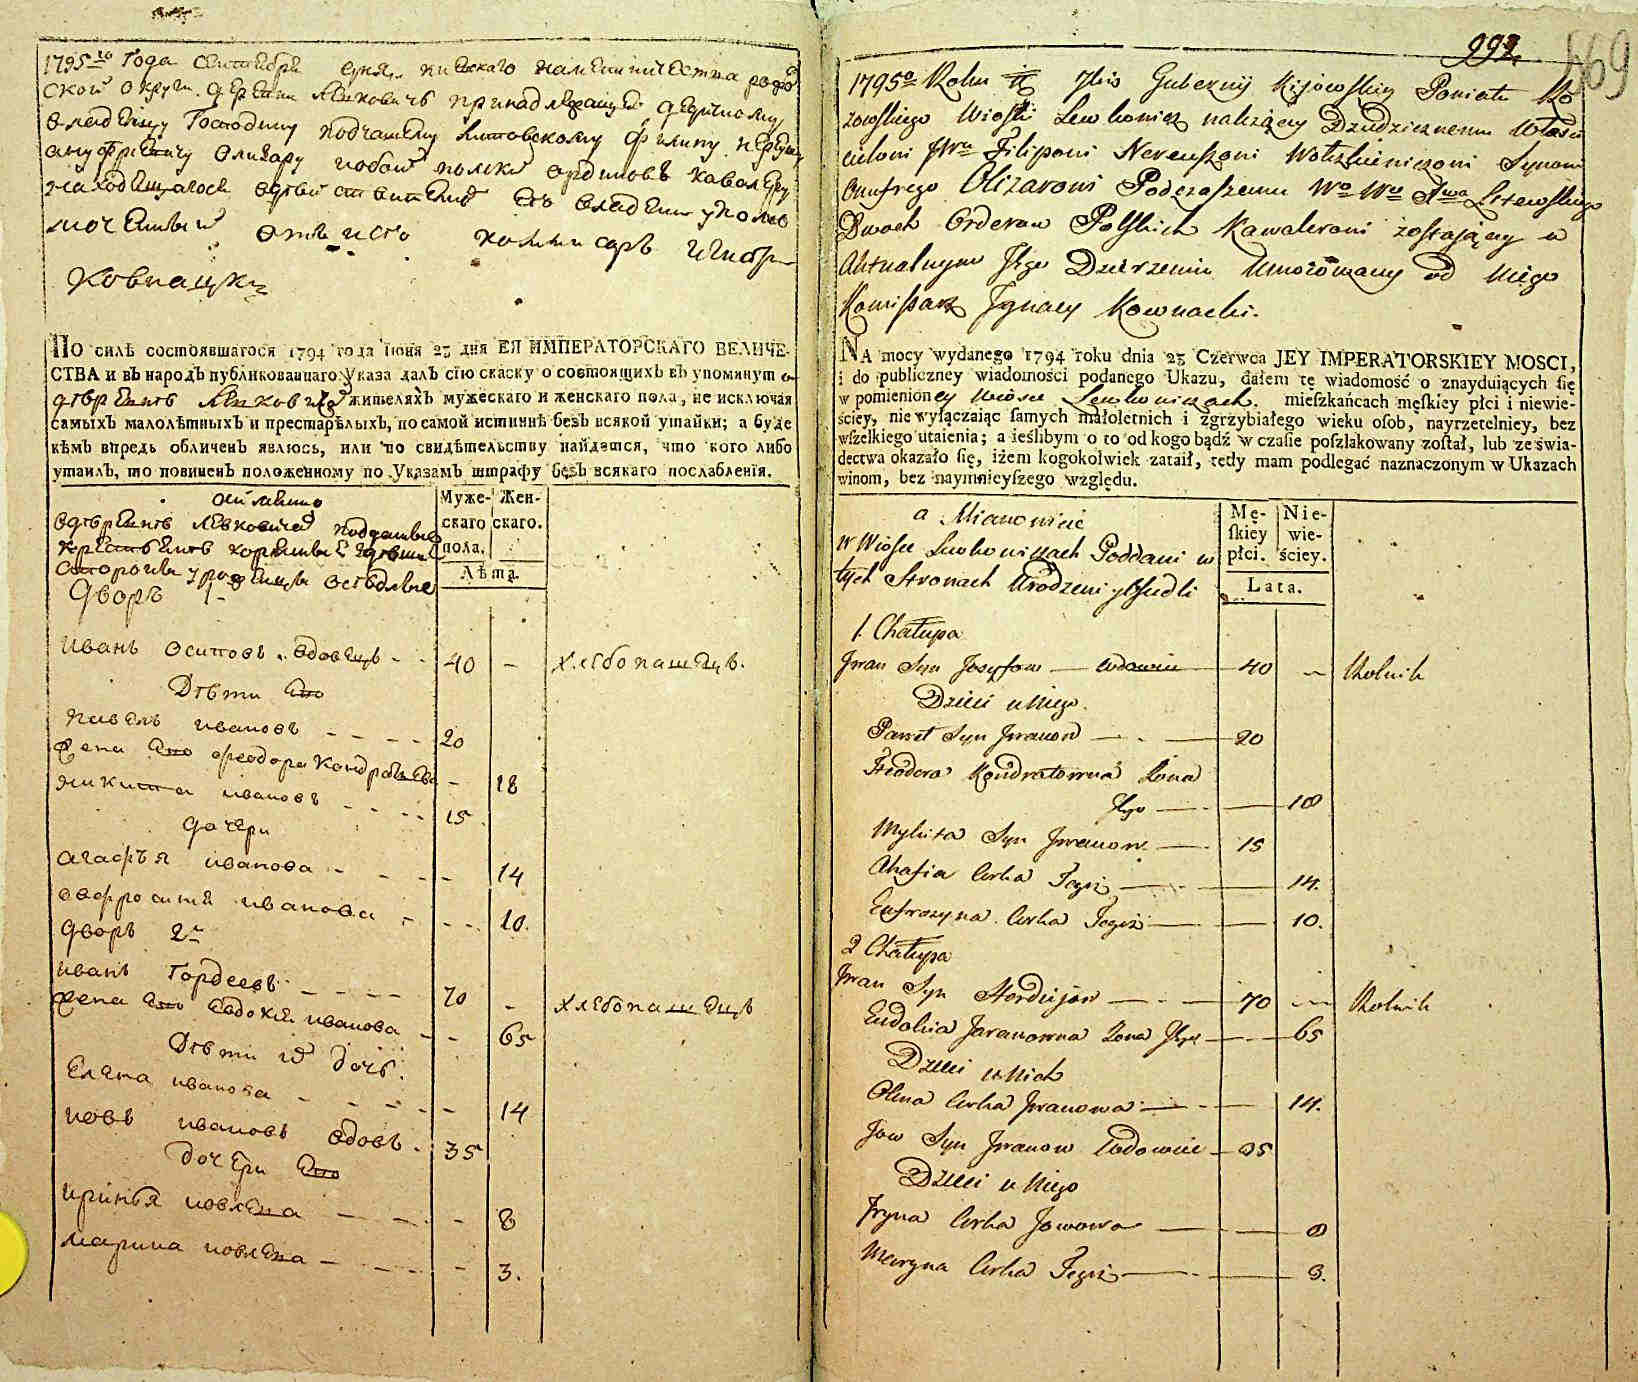 1795го Года сентебря дня, киевскаго наместничества радо
ской округи деревни Левковичъ принадлежащей дедичному
владельцу Господину подчашему Литовскому Филипу Нереушу
ануфриевичу Олизару обоихъ полски ординовъ кавалеру
находещагося въ действителномъ его владении уполно
моченный отъ него коммисаръ Игнатей
Ковнацки
По силѣ состоявшагося 1794 года іюня 23 дня ЕЯ ИМПЕРАТОРСКАГО ВЕЛИЧЕ-
СТВА и въ народъ публикованнаго Указа далъ сію скаску о состоящихъ въ упомянутой
деревнѣ Левковичахъ жителяхъ мужескаго и женскаго пола, не исключая
самыхъ малолѣтныхъ и престарѣлыхъ, по самой истиннѣ безъ всякой утайки; а буде
кѣмъ впредь обличенъ явлюсь, или по свидѣтельству найдется, что кого либо
утаилъ, то повиненъ положенному по Указамъ штрафу безъ всякаго послабленія.
а имянно
въ деревнѣ Левковичей подданные
Муже-скаго пола. Жен-скаго.
Лѣта.
Дворъ 1
иванъ осиповъ вдовецъ - - 40 - хлебопашецъ.
Дѣти его
павелъ ивановъ - - - - 20
жена его феодора кондратьева - 18
никита ивановъ - - - - 15
дочери
агафья иванова - - - - 14
евфросинiя иванова - - - 10.
дворъ 2й
иванъ Гордеевъ - - - - 70 - хлебопашецъ
жена его евдокия иванова - - 65
Дѣти их дочь.
елена иванова - - - - 14
иовъ ивановъ вдовъ - 35
дочери его
иринья иовлева - - - 8
марина иовлева - - - 3.
992
569
1795o Roku 7bris Gubernij Kijowskiey Powiatu Ra
domskiego Wioski Lewkowicz należący Dziedzicznemu Właści
cielowi JWu Filipowi Nereuszowi Synowi
Onufrego Olizarowi Podczaszemu Litewskiego
Dwoch Orderow Polskich Kawalerowi zostaiący w
Aktualnym Jego Dzierzeniu Umocowany od niego
Komissarz Jgnacy Kownacki.
NA mocy wydanego 1794 roku dnia 23 Czerwca JEY IMPERATORSKIEY MOSCI,
i do publiczney wiadomości podanego Ukazu, dałem tę wiadomość o znayduiących się
w pomienioney wiosce Lewkowiczach mieszkańcach męskiey płci i niewie-
ściey, nie wyłączaiąc samych małoletnich i zgrzybiałego wieku osob, nayrzetelniey, bez
wszelkiego utaienia; a ieślibym o to od kogo bądź w czasie poszlakowany został, lub ze świa-
dectwa okazało się, iżem kogokolwiek zataił, tedy mam podlegać naznaczonym w Ukazach
winom, bez naymnieyszego względu.
a Mianowicie
w Wiosce Lewkowiczach Poddani w
tych Stronach Urodzeni y Osiedli
Mę-skiey płci. Nie-wie-ściey.
Lata.
1 Chałupa
Jwan Syn Josyfow — wdowiec — 40 — Rolnik
Dzieci u Niego.
Paweł Syn Jwanow — 20
Fteodora Kondratowna Zona
Jego — 18
Mykita Syn Jwanow — 15
Ahafia Corka Tegoż — 14.
Eufrozyna Corka Tegoż — 10.
2 Chałupa
Jwan Syn Hordiejow — 70 — Rolnik
Eudokia Jwanowna Zona Jego — 65
Dzieci u Nich
Olena Corka Jwanowa — 14.
Jow Syn Jwanow Wdowiec — 35
Dzieci u Niego
Jryna Corka Jowowa — 8
Maryna Corka Tegoż — 3.